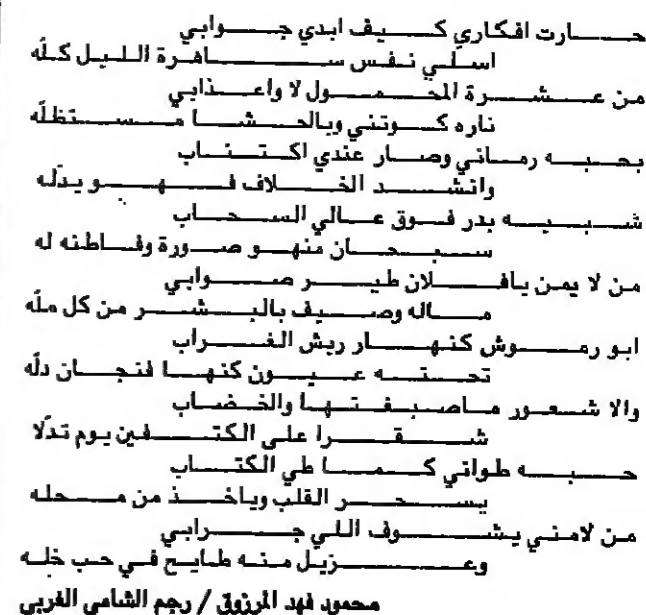 حارت افكاري كيف ابدي جوابي
اسلي نفس ساهرة الليل كلّه
من عشرة المحمول لا واعذابي
ناره كوتني وبالحشا مستظلّه
بحبه رماني وصار عندي اكتئاب
وانشد الخلاف فهو يدلّه
شبيه بدر فوق عالي السحاب
سبحان منهو صورة وفاطنه له
من لا يمن يافلان طير صوابي
ماله وصيف بالبشر من كل ملّه
ابو رموش كنهار ريش الغراب
تحته عيون كنها فنجان دلّه
والا شعور ماصبغتها والخضاب
شقرا على الكتفين يوم تدلّا
حبه طواني كما طي الكتاب
يسحر القلب وياخذ من محله
من لامني يشوف اللي جرابي
وعزيل منه طايح في حب خله
محمود فهد المرزوق / رجم الشامي الغربي